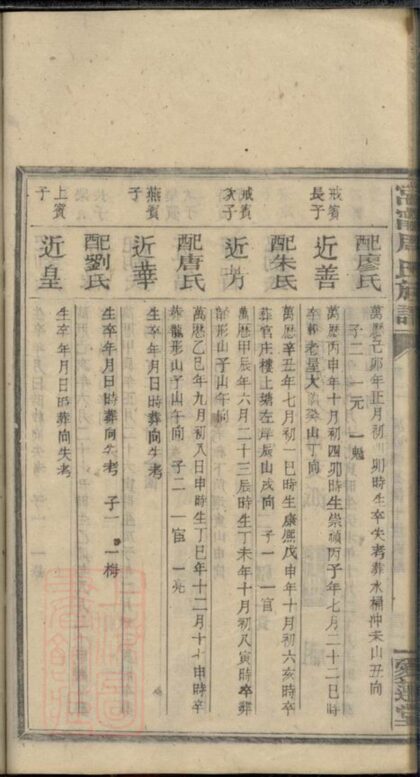 氏族譜
配廖氏
萬曆己卯年正月初卯時生卒失考葬水桶沖未山丑向
子二 一元 一魁
戒賓長子
近善
萬曆丙申年十月初四卯時生崇禎丙子年七月二十二巳時
卒葬老屋大癸山丁向
配朱氏
萬曆辛丑年七月初一巳時生康熙戊申年十月初六亥時卒
葬官庄樓上塘左岸辰山戌向 子一 一官
戒賓次子
近方
萬曆甲辰年六月二十三辰時生丁未年十月初八寅時卒葬
形山子山午向
配唐氏
萬曆乙巳年九月初八日申時生丁巳年十二月十申時卒
葬龍形山子山午向 子二 一宦 一亮
燕賓子
近華
生卒年月日時葬向失考
配劉氏
生卒年月日時葬向失考 子一 一梅
上賓子
近皇
生卒年月日時葬向失考